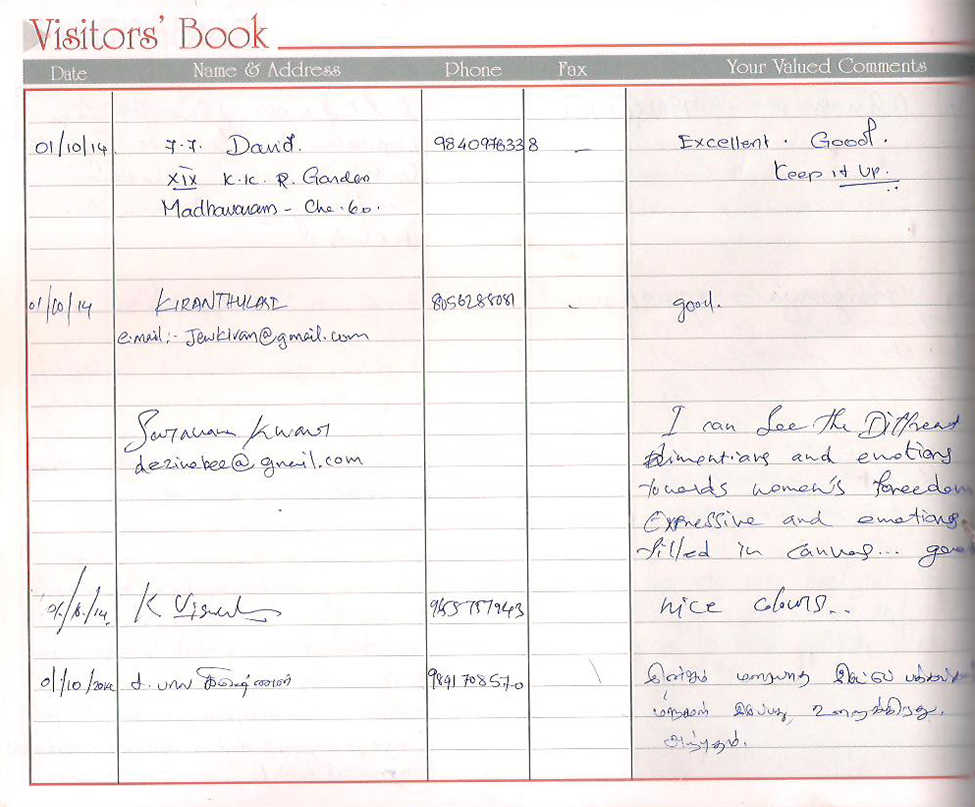 Visitors' Book
Date Name & Address Phone Fax Your Valued Comments
01/10/14 J.J. David. 9840976338 — Excellent. Good.
XIX K.K. R. Garden Keep it up.
Madhavaram - Che.60.
01/10/14 KIRANTHULASI 8056288081 - good.
e.mail:- Jewkiran@gmail.com
Saravana Kumar I can See the Different
dezinebee@gmail.com dimentians and emotions
towards women's foreedom
Expressive and emotions
filled in canvas...
/14 K 9455757943 nice colours...
01/10/2014 ச. பால 9891708570
அற்புதம்.